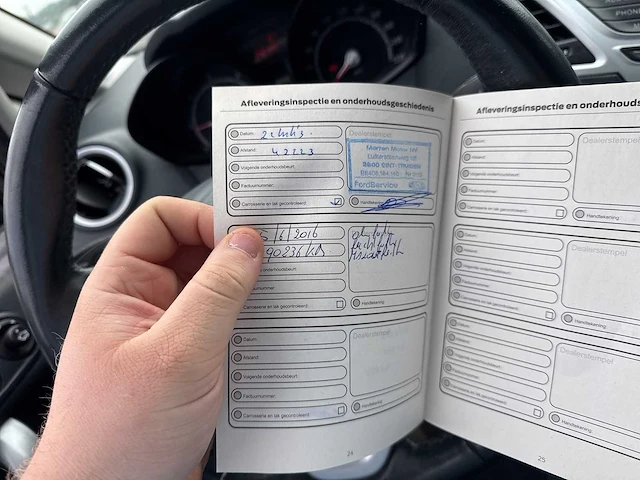 Afleveringsinspectie en onderhoudsgeschiedenis
Datum:
Afstand: 42223
Volgende onderhoudsbeurt:
Factuurnummer:
Carrosserie en lak gecontroleerd:
Dealerstempel
FordService
Handtekening:
5/6/2016
90236 KM
onderhoudsbeurt:
nummer:
Carrosserie en lak gecontroleerd:
Handtekening:
Datum:
Afstand:
Volgende onderhoudsbeurt:
Factuurnummer:
Carrosserie en lak gecontroleerd:
Dealerstempel
Handtekening:
24
Afleveringsinspectie en onderhoud
Datum:
Afstand:
Volgende onderhoudsbeurt:
Factuurnummer:
Carrosserie en lak gecontroleerd:
Dealerstempel
Handtekening:
Datum:
Afstand:
Volgende onderhoudsbeurt:
Factuurnummer:
Carrosserie en lak gecontroleerd:
Dealerstempel
Handtekening:
Datum:
Afstand:
Volgende onderhoudsbeurt:
Factuurnummer:
Carrosserie en lak gecontroleerd:
Dealerstempel
Handtekening:
25
PHONE